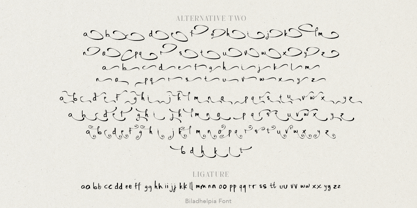 ALTERNATIVE TWO
a b c d e f g h i j k l m
n o p q r s t u v w x y z
a b c d e f g h i j k l m
n o p q r s t u v w x y z
a b c d e f g h i j k l m n o p q r s t u v w x y z
a b c d e f g h i j k l m n o p q r s t u v w x y z
a b c d e f g h i j k l m n o p q r s t u v w x y z
b d h k l t
LIGATURE
aa bb cc dd ee ff gg hh ii jj kk ll mm nn oo pp qq rr ss tt uu vv ww xx yy zz
Bladhelpia Font